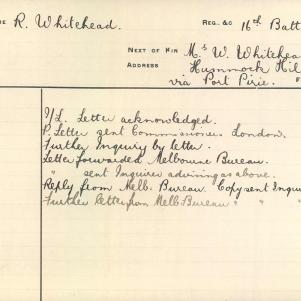 R. Whitehead. REG. &C 16th Batt
NEXT OF KIN Mrs W. Whitehea
ADDRESS Hummock Hil
via Port Pirie.
I/L. Letter acknowledged.
P. Letter sent Commissioner London.
Further Inquiry by letter.
Letter forwarded Melbourne Bureau.
" sent Inquirer advising as above.
Reply from Melb. Bureau Copy sent Inqui
Further Letter from Melb. Bureau " "